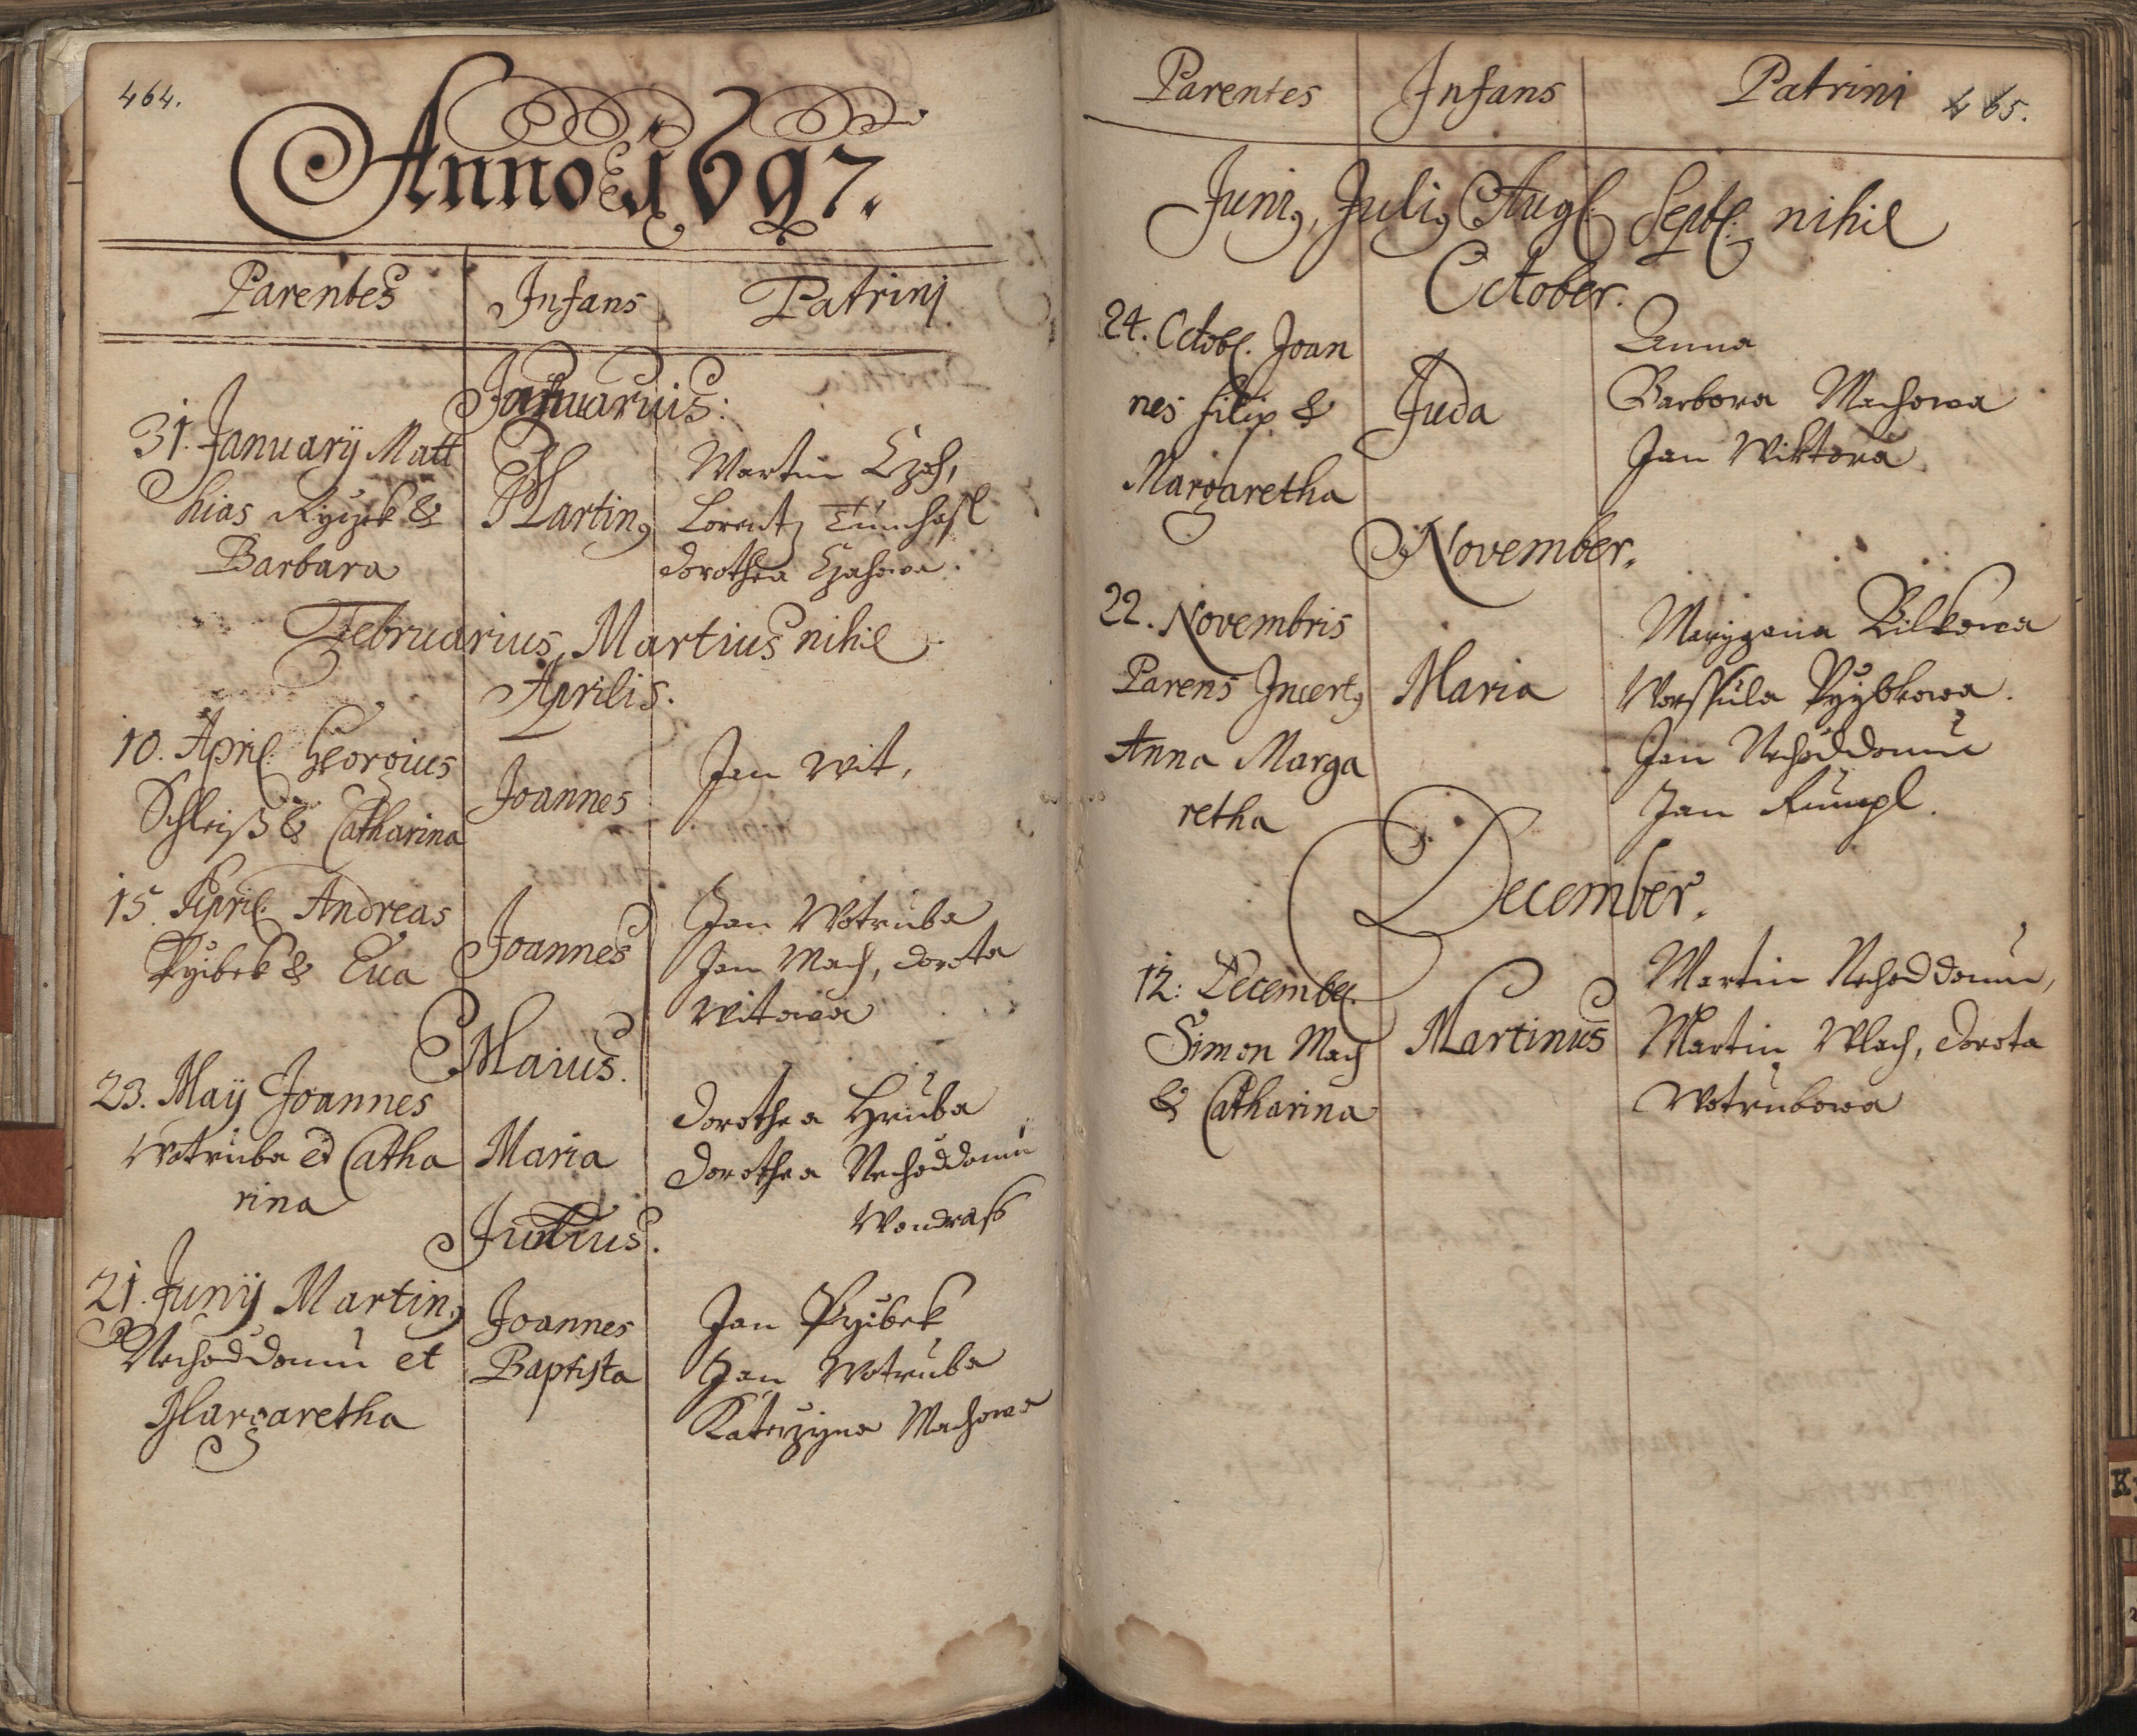 464.
Anno 1697.
Parentes Infans Patrini
Januarius.
31. Januarij Matt
hias & Barbara
Martin9
Martin
Lorentz
Dorothea
Februarius, Martius nihil
Aprilis.
10. April. Georgius
Schleiß & Catharina
Joannes
Jan Wit,
15. April. Andreas
Pyibek & Eva
Joannes
Jan Wotruba
Jan Mach, Dorota
Witowa
Maius.
23. Maij Joannes
Wotruba et Catha
rina
Maria
Dorothea Hruba
Dorothea Nechoddomu
Wondraß
Junius.
21. Junij Martin9
Nechoddomu et
Margaretha
Joannes
Baptista
Jan Pyibek
Jan Wotruba
Katerzyna Machowa
Parentes Infans Patrini 465.
Juni9, Juli9 Augl. Septl. nihil
October.
24. Octobl. Joan
nes filip &
Margaretha
Juda
Anna
Barbora Machowa
Jan Wiktora
November.
22. Novembris
Parens Incert9
Anna Marga
retha
Maria
Maryzana Bilkowa
Worssula Pyybkowa.
Jan Nechoddomu
Jan Rumpl.
December.
12. Decembl.
Simon Mach
& Catharina
Martinus
Martin Nechoddomu,
Martin Wlach, Dorota
Wotrubowa